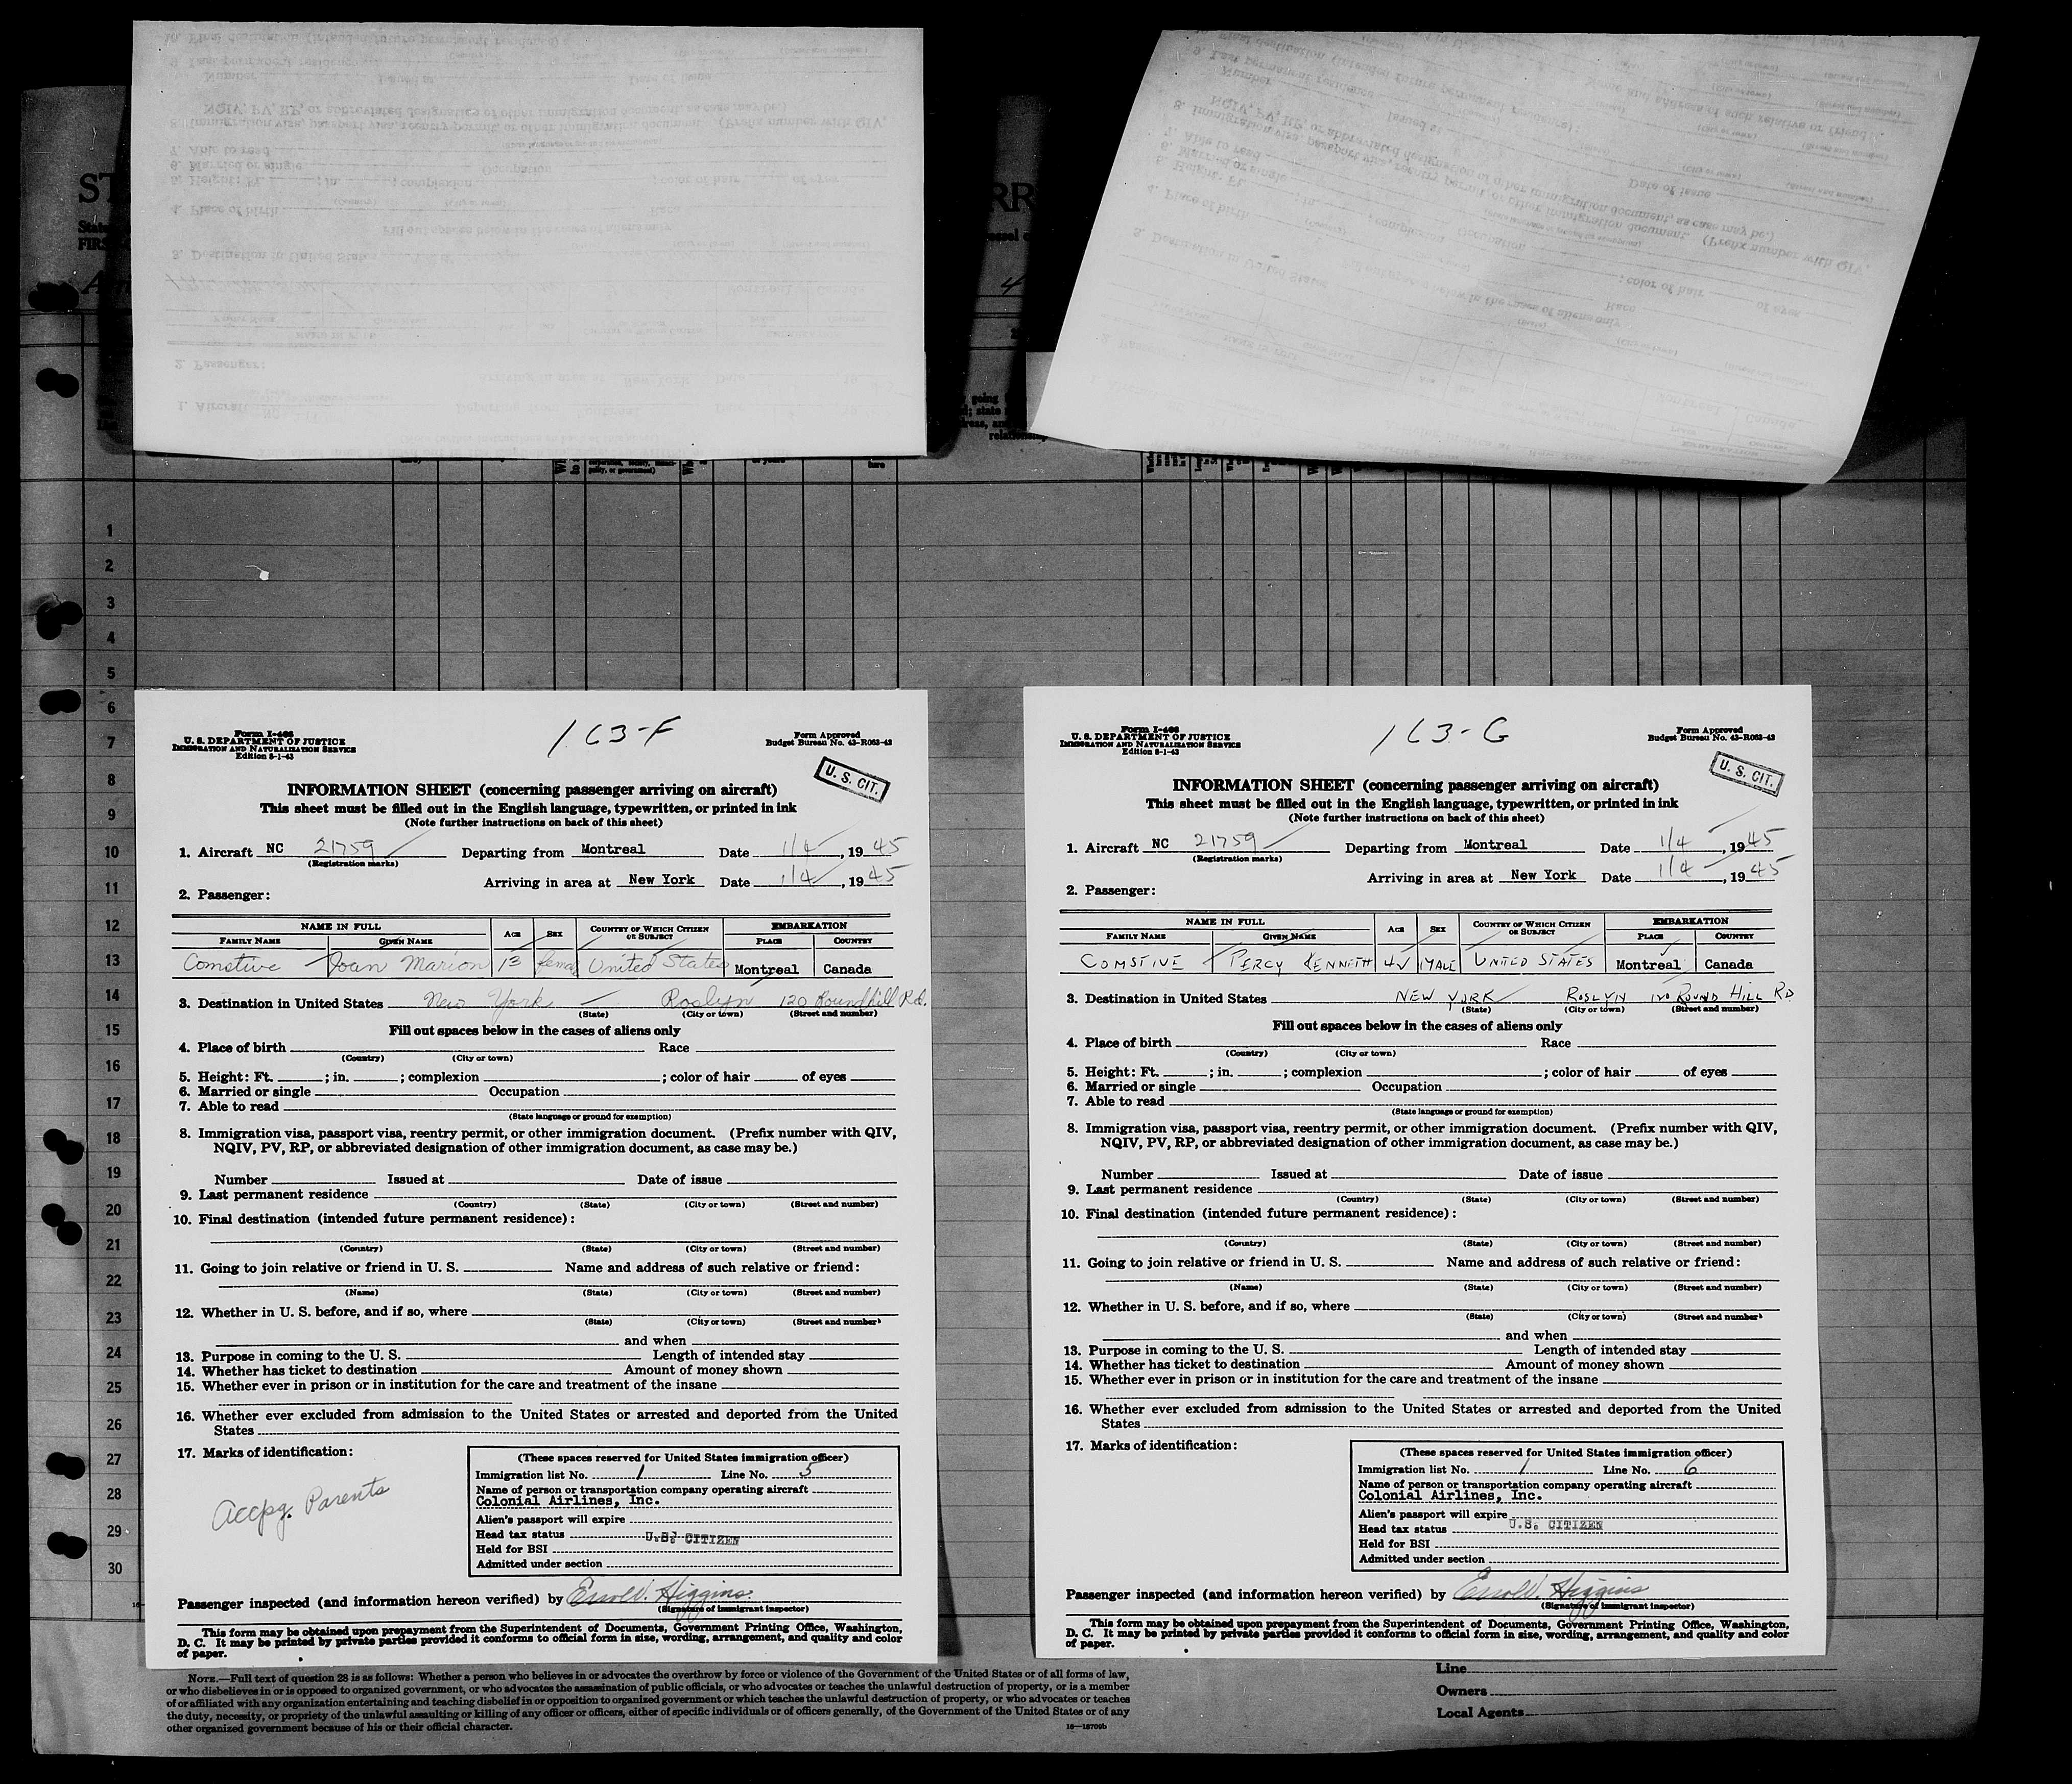 163-F
Form I-466
U. S. DEPARTMENT OF JUSTICE
IMMIGRATION AND NATURALIZATION SERVICE
Edition 8-1-43
Form Approved
Budget Bureau No. 43-R063-42
U. S. CIT.
INFORMATION SHEET (concerning passenger arriving on aircraft)
This sheet must be filled out in the English language, typewritten, or printed in ink
(Note further instructions on back of this sheet)
1. Aircraft NC 21759 Departing from Montreal Date 1/4, 1945
(Registration marks)
Arriving in area at New York Date 1/4, 1945
2. Passenger:
NAME IN FULL AGE SEX COUNTRY OF WHICH CITIZEN OR SUBJECT EMBARKATION
FAMILY NAME GIVEN NAME PLACE COUNTRY
Comstive Joan Marion 13 female United States Montreal Canada
3. Destination in United States New York Roslyn 120 Roundhill Rd.
(State) (City or town) (Street and number)
Fill out spaces below in the cases of aliens only
4. Place of birth Race
(Country) (City or town)
5. Height: Ft. ; in. ; complexion ; color of hair of eyes
6. Married or single Occupation
7. Able to read
(State language or ground for exemption)
8. Immigration visa, passport visa, reentry permit, or other immigration document. (Prefix number with QIV,
NQIV, PV, RP, or abbreviated designation of other immigration document, as case may be.)
Number Issued at Date of issue
9. Last permanent residence
(Country) (State) (City or town) (Street and number)
10. Final destination (intended future permanent residence):
(Country) (State) (City or town) (Street and number)
11. Going to join relative or friend in U. S. Name and address of such relative or friend:
(Name) (State) (City or town) (Street and number)
12. Whether in U. S. before, and if so, where
(State) (City or town) (Street and number)
and when
13. Purpose in coming to the U. S. Length of intended stay
14. Whether has ticket to destination Amount of money shown
15. Whether ever in prison or in institution for the care and treatment of the insane
16. Whether ever excluded from admission to the United States or arrested and deported from the United
States
17. Marks of identification:
Accpg. Parents
(These spaces reserved for United States immigration officer)
Immigration list No. 1 Line No. 5
Name of person or transportation company operating aircraft
Colonial Airlines, Inc.
Alien's passport will expire
Head tax status U.S. CITIZEN
Held for BSI
Admitted under section
Passenger inspected (and information hereon verified) by Errol W. Higgins
(Signature of immigrant inspector)
This form may be obtained upon prepayment from the Superintendent of Documents, Government Printing Office, Washington,
D. C. It may be printed by private parties provided it conforms to official form in size, wording, arrangement, and quality and color
of paper.
163-G
Form I-466
U. S. DEPARTMENT OF JUSTICE
IMMIGRATION AND NATURALIZATION SERVICE
Edition 8-1-43
Form Approved
Budget Bureau No. 43-R063-42
U. S. CIT.
INFORMATION SHEET (concerning passenger arriving on aircraft)
This sheet must be filled out in the English language, typewritten, or printed in ink
(Note further instructions on back of this sheet)
1. Aircraft NC 21759 Departing from Montreal Date 1/4, 1945
(Registration marks)
Arriving in area at New York Date 1/4, 1945
2. Passenger:
NAME IN FULL AGE SEX COUNTRY OF WHICH CITIZEN OR SUBJECT EMBARKATION
FAMILY NAME GIVEN NAME PLACE COUNTRY
COMSTIVE PERCY KENNETH MALE UNITED STATES Montreal Canada
3. Destination in United States NEW YORK ROSLYN 120 ROUND HILL RD
(State) (City or town) (Street and number)
Fill out spaces below in the cases of aliens only
4. Place of birth Race
(Country) (City or town)
5. Height: Ft. ; in. ; complexion ; color of hair of eyes
6. Married or single Occupation
7. Able to read
(State language or ground for exemption)
8. Immigration visa, passport visa, reentry permit, or other immigration document. (Prefix number with QIV,
NQIV, PV, RP, or abbreviated designation of other immigration document, as case may be.)
Number Issued at Date of issue
9. Last permanent residence
(Country) (State) (City or town) (Street and number)
10. Final destination (intended future permanent residence):
(Country) (State) (City or town) (Street and number)
11. Going to join relative or friend in U. S. Name and address of such relative or friend:
(Name) (State) (City or town) (Street and number)
12. Whether in U. S. before, and if so, where
(State) (City or town) (Street and number)
and when
13. Purpose in coming to the U. S. Length of intended stay
14. Whether has ticket to destination Amount of money shown
15. Whether ever in prison or in institution for the care and treatment of the insane
16. Whether ever excluded from admission to the United States or arrested and deported from the United
States
17. Marks of identification:
(These spaces reserved for United States immigration officer)
Immigration list No. 1 Line No. 6
Name of person or transportation company operating aircraft
Colonial Airlines, Inc.
Alien's passport will expire
Head tax status U.S. CITIZEN
Held for BSI
Admitted under section
Passenger inspected (and information hereon verified) by Errol W. Higgins
(Signature of immigrant inspector)
This form may be obtained upon prepayment from the Superintendent of Documents, Government Printing Office, Washington,
D. C. It may be printed by private parties provided it conforms to official form in size, wording, arrangement, and quality and color
of paper.
1
2
3
4
5
6
7
8
9
10
11
12
13
14
15
16
17
18
19
20
21
22
23
24
25
26
27
28
29
30
NOTE.—Full text of question 28 is as follows: Whether a person who believes in or advocates the overthrow by force or violence of the Government of the United States or of all forms of law,
or who disbelieves in or is opposed to organized government, or who advocates the assassination of public officials, or who advocates or teaches the unlawful destruction of property, or is a member
of or affiliated with any organization entertaining and teaching disbelief in or opposition to organized government or which teaches the unlawful destruction of property, or who advocates or teaches
the duty, necessity, or propriety of the unlawful assaulting or killing of any officer or officers, either of specific individuals or of officers generally, of the Government of the United States or of any
other organized government because of his or their official character.
16-18709b
Line
Owners
Local Agents